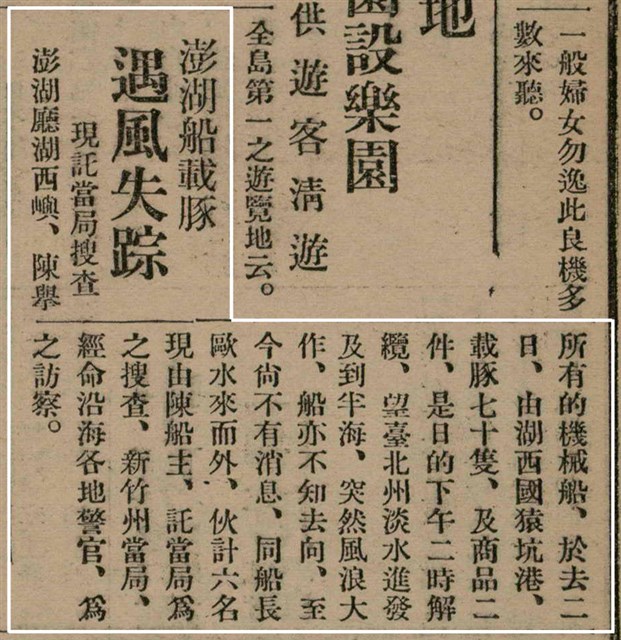 一般婦女勿逸此良機多
數來聽。
地
設樂園
供遊客淸遊
全島第一之遊覽地云。
澎湖船載豚
遇風失踪
現託當局搜查
澎湖廳湖西嶼、陳擧
所有的機械船、於去二
日、由湖西國猿坑港、
載豚七十隻、及商品二
件、是日的下午二時解
纜、望臺北州淡水進發
及到半海、突然風浪大
作、船亦不知去向、至
今尙不有消息、同船長
歐水來而外、伙計六名
現由陳船主、託當局爲
之搜查、新竹州當局、
經命沿海各地警官、爲
之訪察。